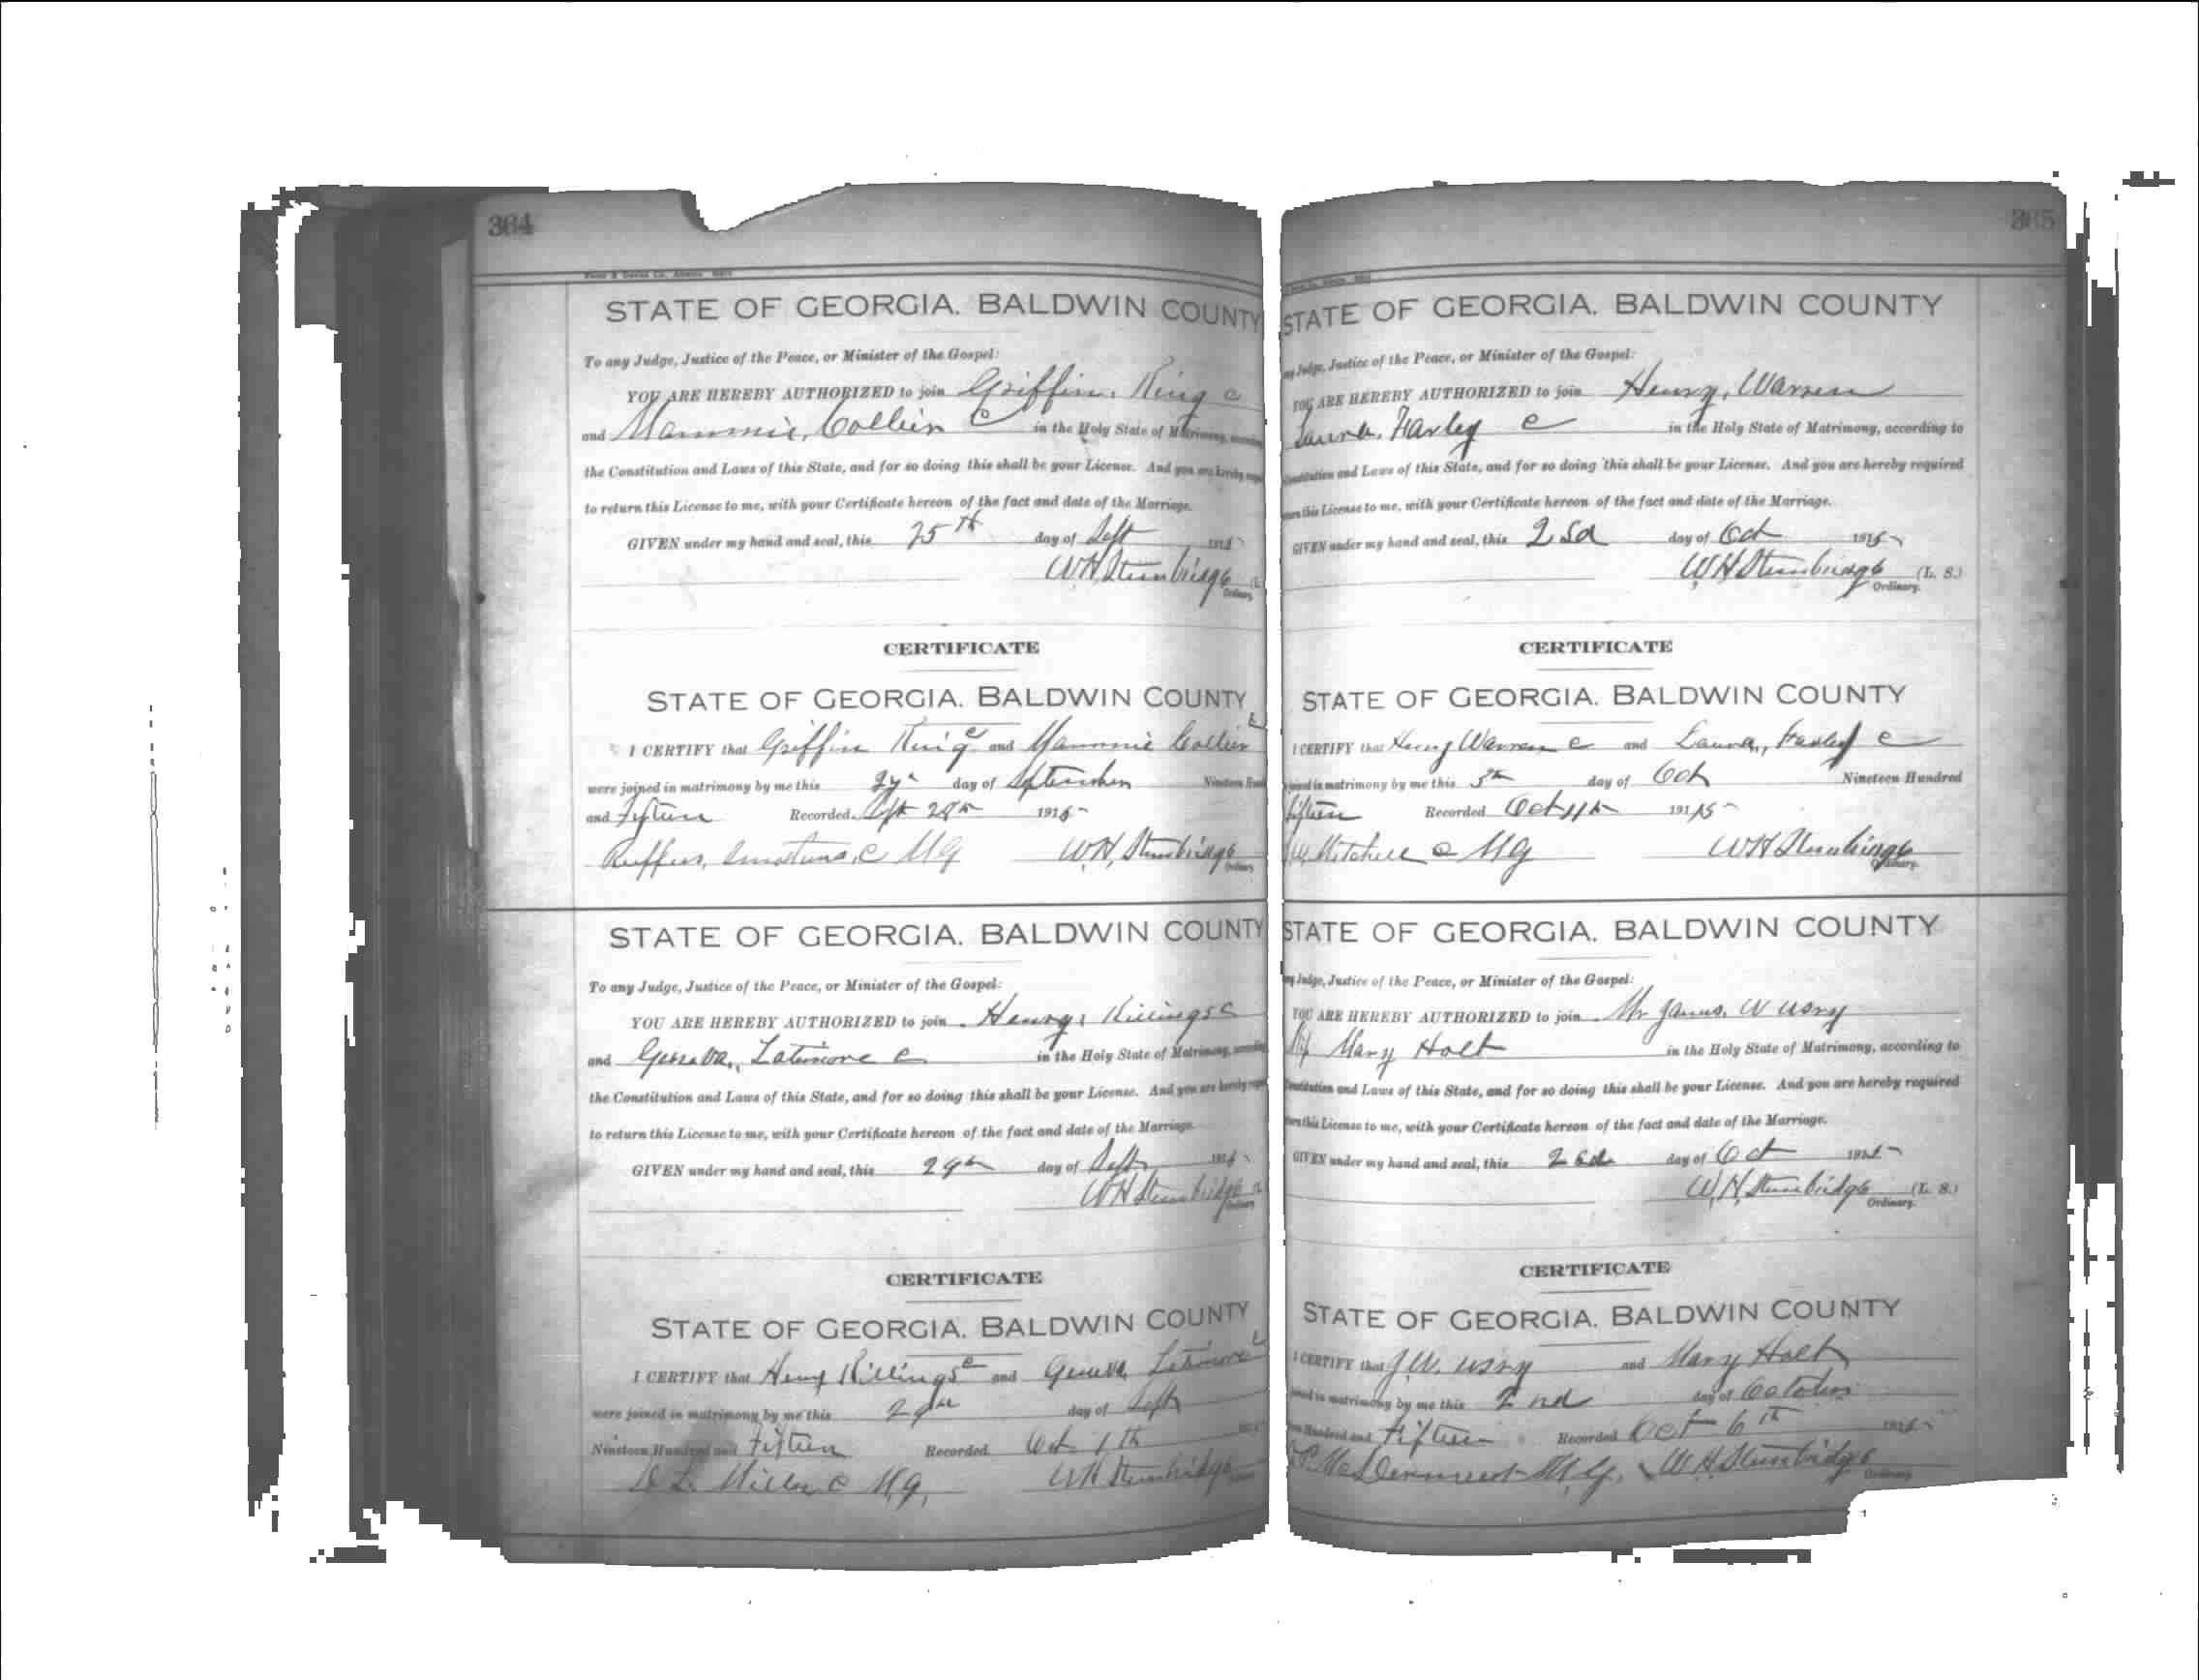 364
STATE OF GEORGIA. BALDWIN COUNTY
To any Judge, Justice of the Peace, or Minister of the Gospel:
YOU ARE HEREBY AUTHORIZED to join Griffin, King c
and Mammie, Collier c in the Holy State of Matrimony,
the Constitution and Laws of this State, and for so doing this shall be your License. And you are hereby
to return this License to me, with your Certificate hereon of the fact and date of the Marriage.
GIVEN under my hand and seal, this 25th day of Sept 1915
W H Stembridge
Ordinary.
CERTIFICATE
STATE OF GEORGIA. BALDWIN COUNTY
I CERTIFY that Griffin King c and Mammie Collier c
were joined in matrimony by me this day of September Nineteen
and Fifteen Recorded 1915
Ruffus, c M G W. H. Stembridge
Ordinary
STATE OF GEORGIA. BALDWIN COUNTY
To any Judge, Justice of the Peace, or Minister of the Gospel:
YOU ARE HEREBY AUTHORIZED to join Henry, Killings c
and Geneva, Latimore c in the Holy State of Matrimony,
the Constitution and Laws of this State, and for so doing this shall be your License. And you are hereby
to return this License to me, with your Certificate hereon of the fact and date of the Marriage.
GIVEN under my hand and seal, this 29th day of Sept
W H Stembridge
CERTIFICATE
STATE OF GEORGIA. BALDWIN COUNTY
I CERTIFY that Henry Killings c and Geneva Latimore c
were joined in matrimony by me this 29th day of Sept
Nineteen Hundred and Fifteen Recorded Oct 1th
L. Miller c M. G. W H Stembridge
365
STATE OF GEORGIA. BALDWIN COUNTY
Judge, Justice of the Peace, or Minister of the Gospel:
YOU ARE HEREBY AUTHORIZED to join Henry, Warren
Laura, Farley c in the Holy State of Matrimony, according to
Constitution and Laws of this State, and for so doing this shall be your License. And you are hereby required
this License to me, with your Certificate hereon of the fact and date of the Marriage.
GIVEN under my hand and seal, this day of Oct 1915
W H Stembridge (L. S.)
Ordinary.
CERTIFICATE
STATE OF GEORGIA. BALDWIN COUNTY
I CERTIFY that Henry Warren c and Laura, Farley c
joined in matrimony by me this 5th day of Oct Nineteen Hundred
fifteen Recorded Oct 11th 1915
Mitchell c M G W H Stembridge
Ordinary.
STATE OF GEORGIA. BALDWIN COUNTY
Judge, Justice of the Peace, or Minister of the Gospel:
YOU ARE HEREBY AUTHORIZED to join Mr James, W Usry
Mary Holt in the Holy State of Matrimony, according to
Constitution and Laws of this State, and for so doing this shall be your License. And you are hereby required
this License to me, with your Certificate hereon of the fact and date of the Marriage.
GIVEN under my hand and seal, this day of Oct 1915
W. H. Stembridge (L. S.)
Ordinary.
CERTIFICATE
STATE OF GEORGIA. BALDWIN COUNTY
I CERTIFY that J. W. Usry and Mary Holt
joined in matrimony by me this 2nd day of October
Hundred and fifteen Recorded Oct 6th 1915
M. G. W H Stembridge
Ordinary